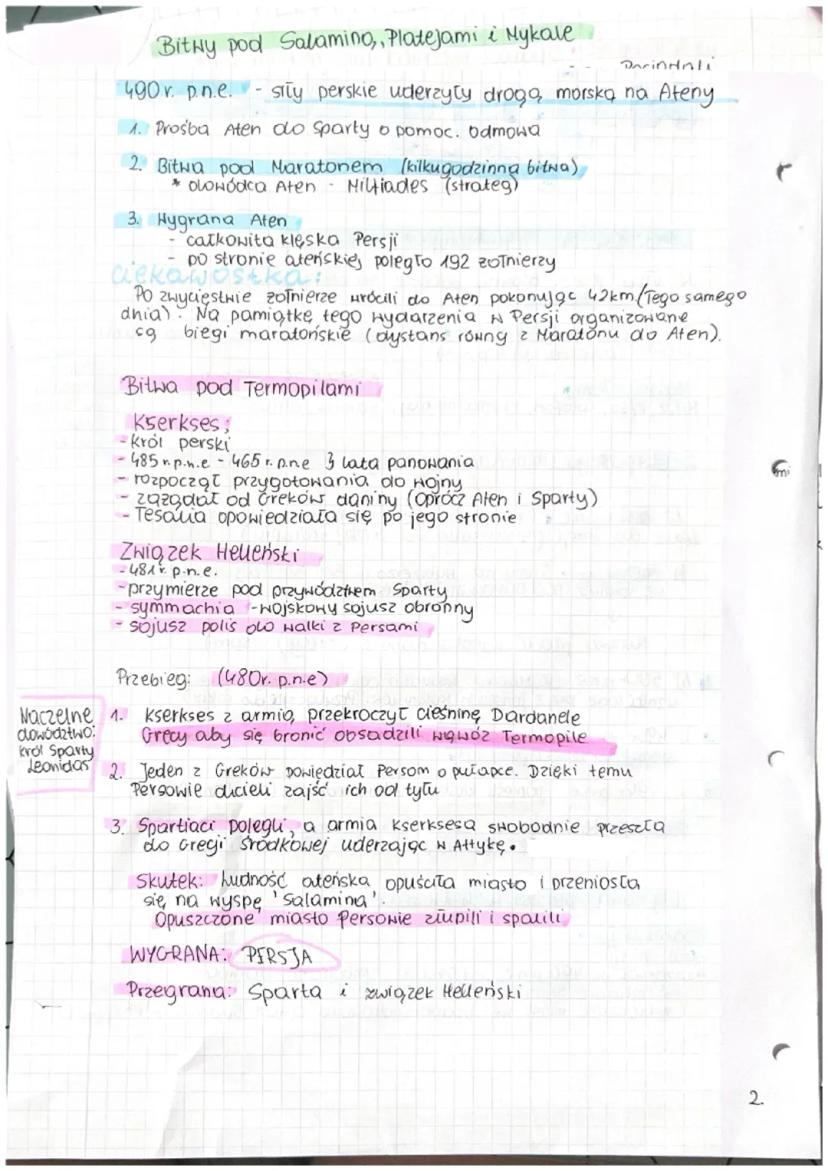 Bitwy pod Salaminą, Platejami i Mykale
490 r. p.n.e. - siły perskie uderzyły drogą morską na Ateny
1. Prośba Aten do Sparty o pomoc. Odmowa
2. Bitwa pod Maratonem (kilkugodzinną bitwa)
* dowódca Aten - Miltiades (strateg)
3. Wygrana Aten
- całkowita klęska Persji
- po stronie ateńskiej poległo 192 żołnierzy
Ciekawostka:
Po zwycięstwie żołnierze wrócili do Aten pokonując 42km (Tego samego
dnia). Na pamiątkę tego wydarzenia w Persji organizowane
są biegi maratońskie (dystans równy z Maratonu do Aten).
Bitwa pod Termopilami
Kserkses:
- król perski
- 485 r.p.n.e - 465 r. p.n.e } lata panowania
- rozpoczął przygotowania do wojny
- zażądał od Greków daniny (oprócz Aten i Sparty)
- Tesalia opowiedziała się po jego stronie
Związek Helleński
- 481 r. p.n.e.
- przymierze pod przywództwem Sparty
- symmachia - wojskowy sojusz obronny
- sojusz polis do walki z Persami
Przebieg: (480r. p.n.e)
Naczelne
dowództwo:
król Sparty
Leonidas
1. Kserkses z armią przekroczył cieśninę Dardanele
Grecy aby się bronić obsadzili wąwóz Termopile
2. Jeden z Greków powiedział Persom o pułapce. Dzięki temu
Persowie chcieli zajść ich od tyłu
3. Spartiaci polegli, a armia Kserksesa swobodnie przeszła
do Grecji środkowej uderzając w Attykę.
Skutek: Ludność ateńska opuściła miasto i przeniosła
się na wyspę 'Salamina'.
Opuszczone miasto Persowie złupili i spalili
WYGRANA: PERSJA
Przegrana: Sparta i związek Helleński
2.